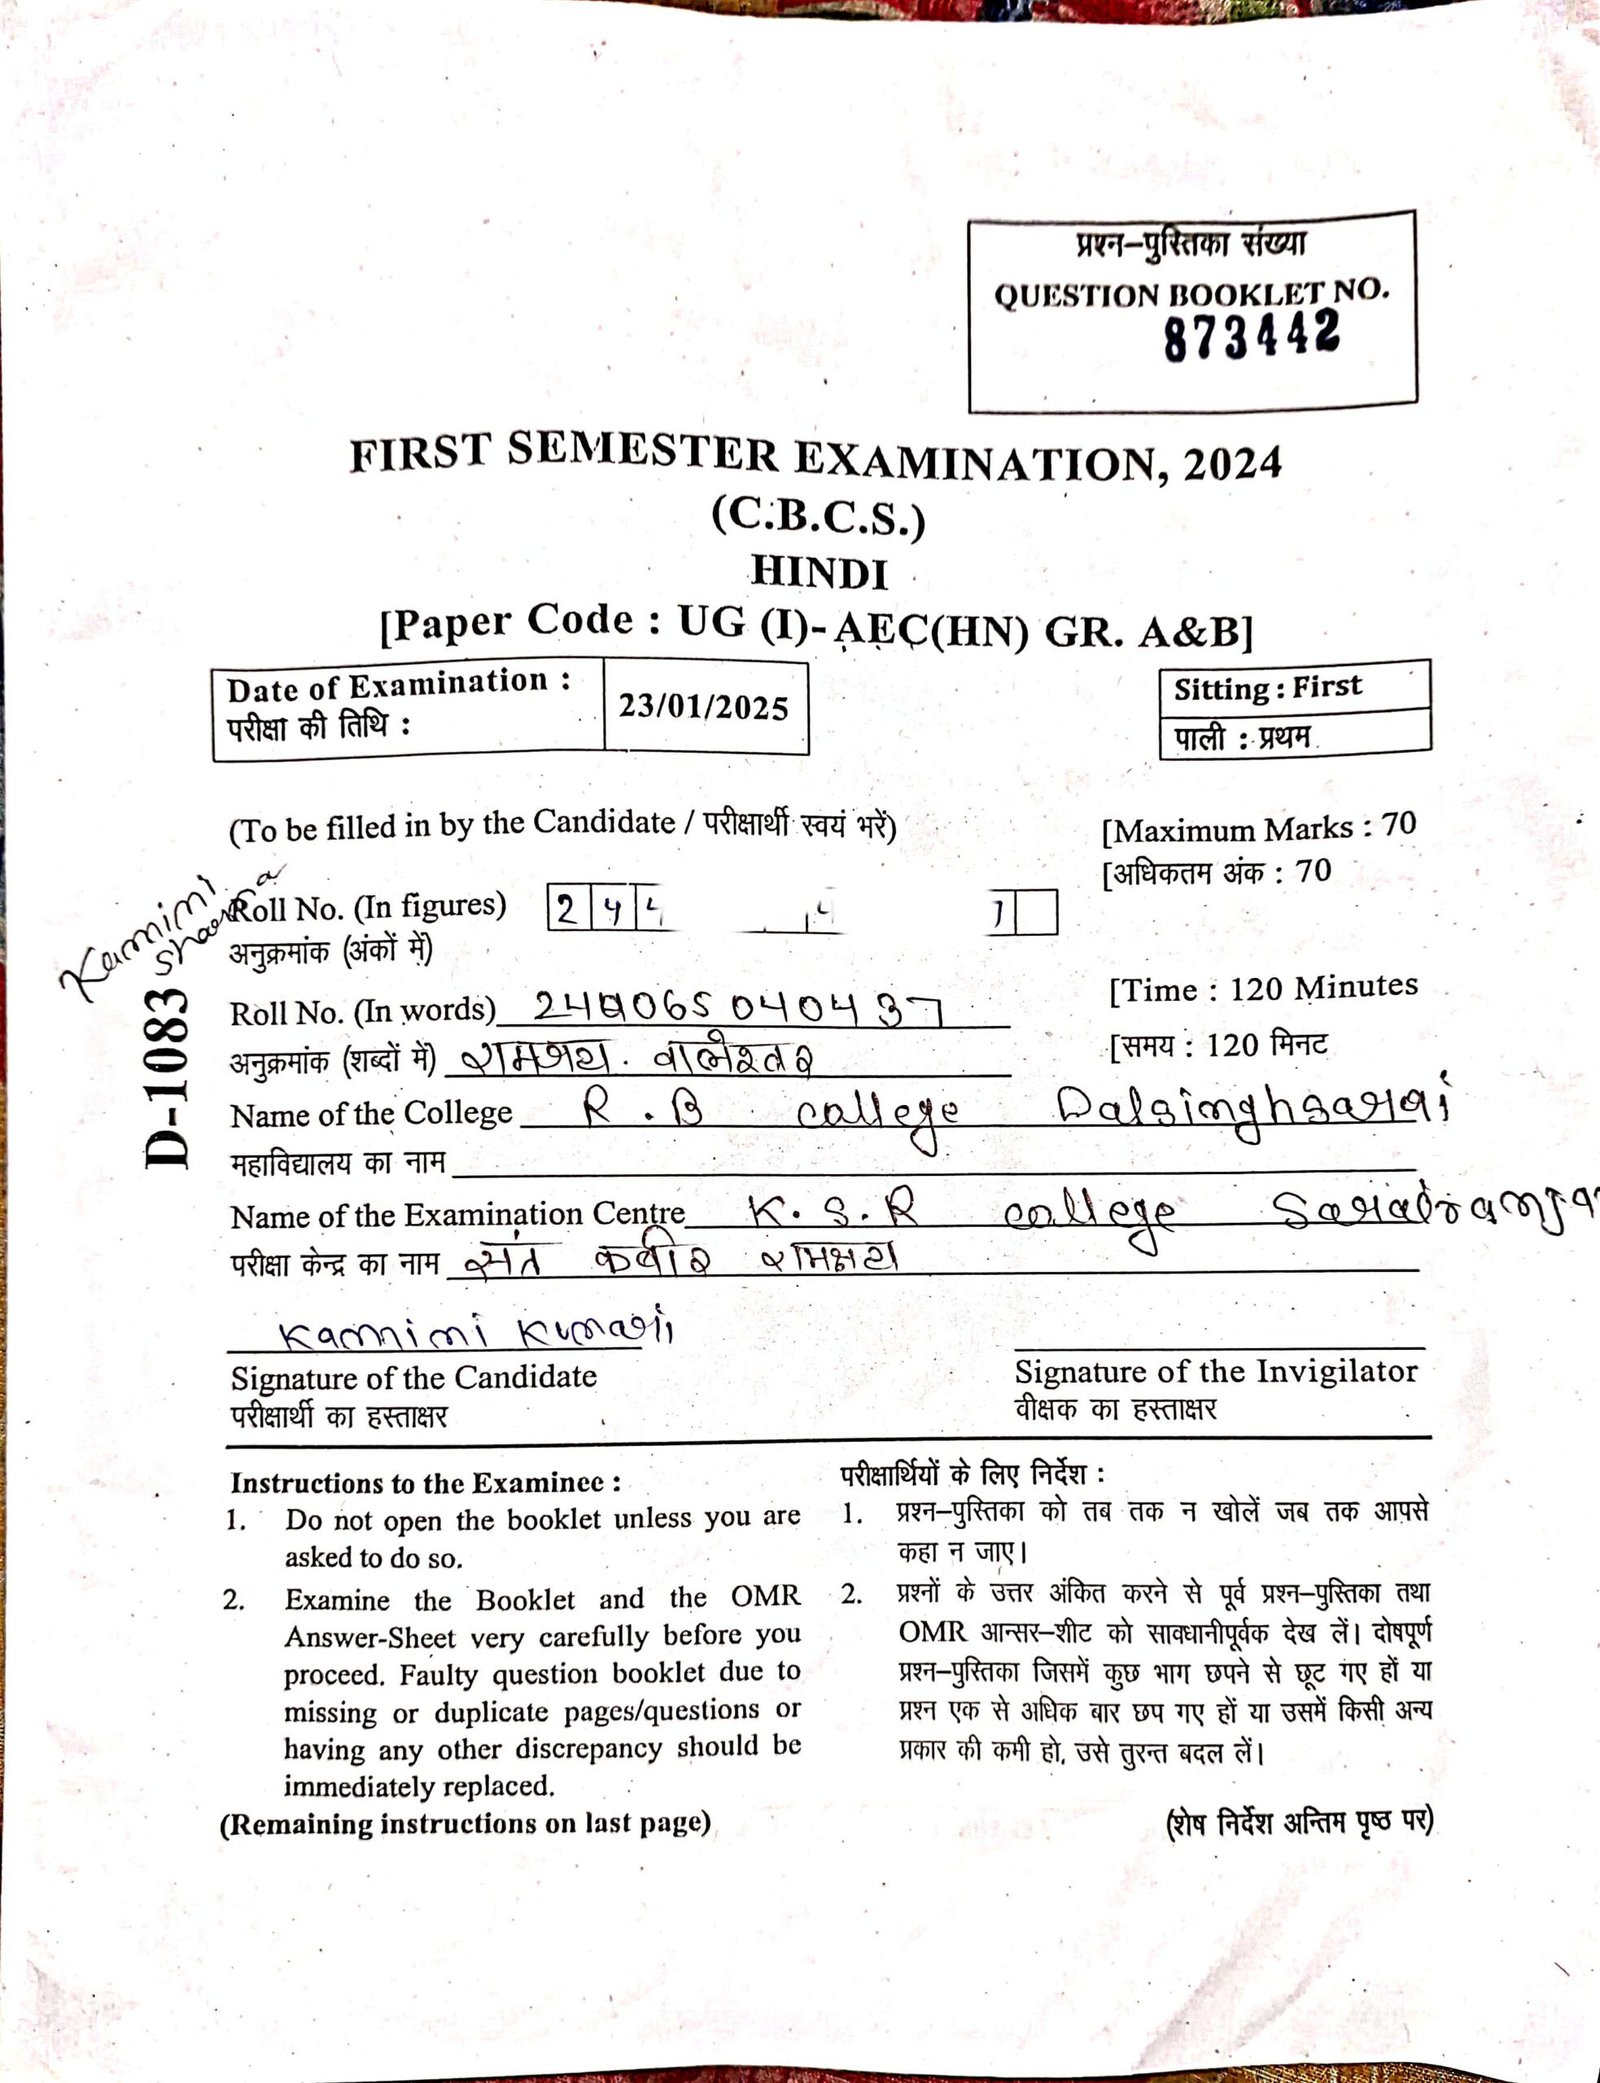 प्रश्न–पुस्तिका संख्या
QUESTION BOOKLET NO.
873442
FIRST SEMESTER EXAMINATION, 2024
(C.B.C.S.)
HINDI
[Paper Code : UG (I)-AEC(HN) GR. A&B]
Date of Examination : 23/01/2025
परीक्षा की तिथि :
Sitting : First
पाली : प्रथम
(To be filled in by the Candidate / परीक्षार्थी स्वयं भरें)
[Maximum Marks : 70
[अधिकतम अंक : 70
Kamini
Sharma
D-1083
Roll No. (In figures) 2 4 4
अनुक्रमांक (अंकों में)
Roll No. (In words)
[Time : 120 Minutes
अनुक्रमांक (शब्दों में)
[समय : 120 मिनट
Name of the College R.B college Dalsinghsarai
महाविद्यालय का नाम
Name of the Examination Centre K.S.R college
परीक्षा केन्द्र का नाम संत कबीर
Kamini Kumari
Signature of the Candidate
परीक्षार्थी का हस्ताक्षर
Signature of the Invigilator
वीक्षक का हस्ताक्षर
Instructions to the Examinee :
1. Do not open the booklet unless you are
asked to do so.
2. Examine the Booklet and the OMR
Answer-Sheet very carefully before you
proceed. Faulty question booklet due to
missing or duplicate pages/questions or
having any other discrepancy should be
immediately replaced.
(Remaining instructions on last page)
परीक्षार्थियों के लिए निर्देश :
1. प्रश्न–पुस्तिका को तब तक न खोलें जब तक आपसे
कहा न जाए।
2. प्रश्नों के उत्तर अंकित करने से पूर्व प्रश्न–पुस्तिका तथा
OMR आन्सर–शीट को सावधानीपूर्वक देख लें। दोषपूर्ण
प्रश्न–पुस्तिका जिसमें कुछ भाग छपने से छूट गए हों या
प्रश्न एक से अधिक बार छप गए हों या उसमें किसी अन्य
प्रकार की कमी हो, उसे तुरन्त बदल लें।
(शेष निर्देश अन्तिम पृष्ठ पर)